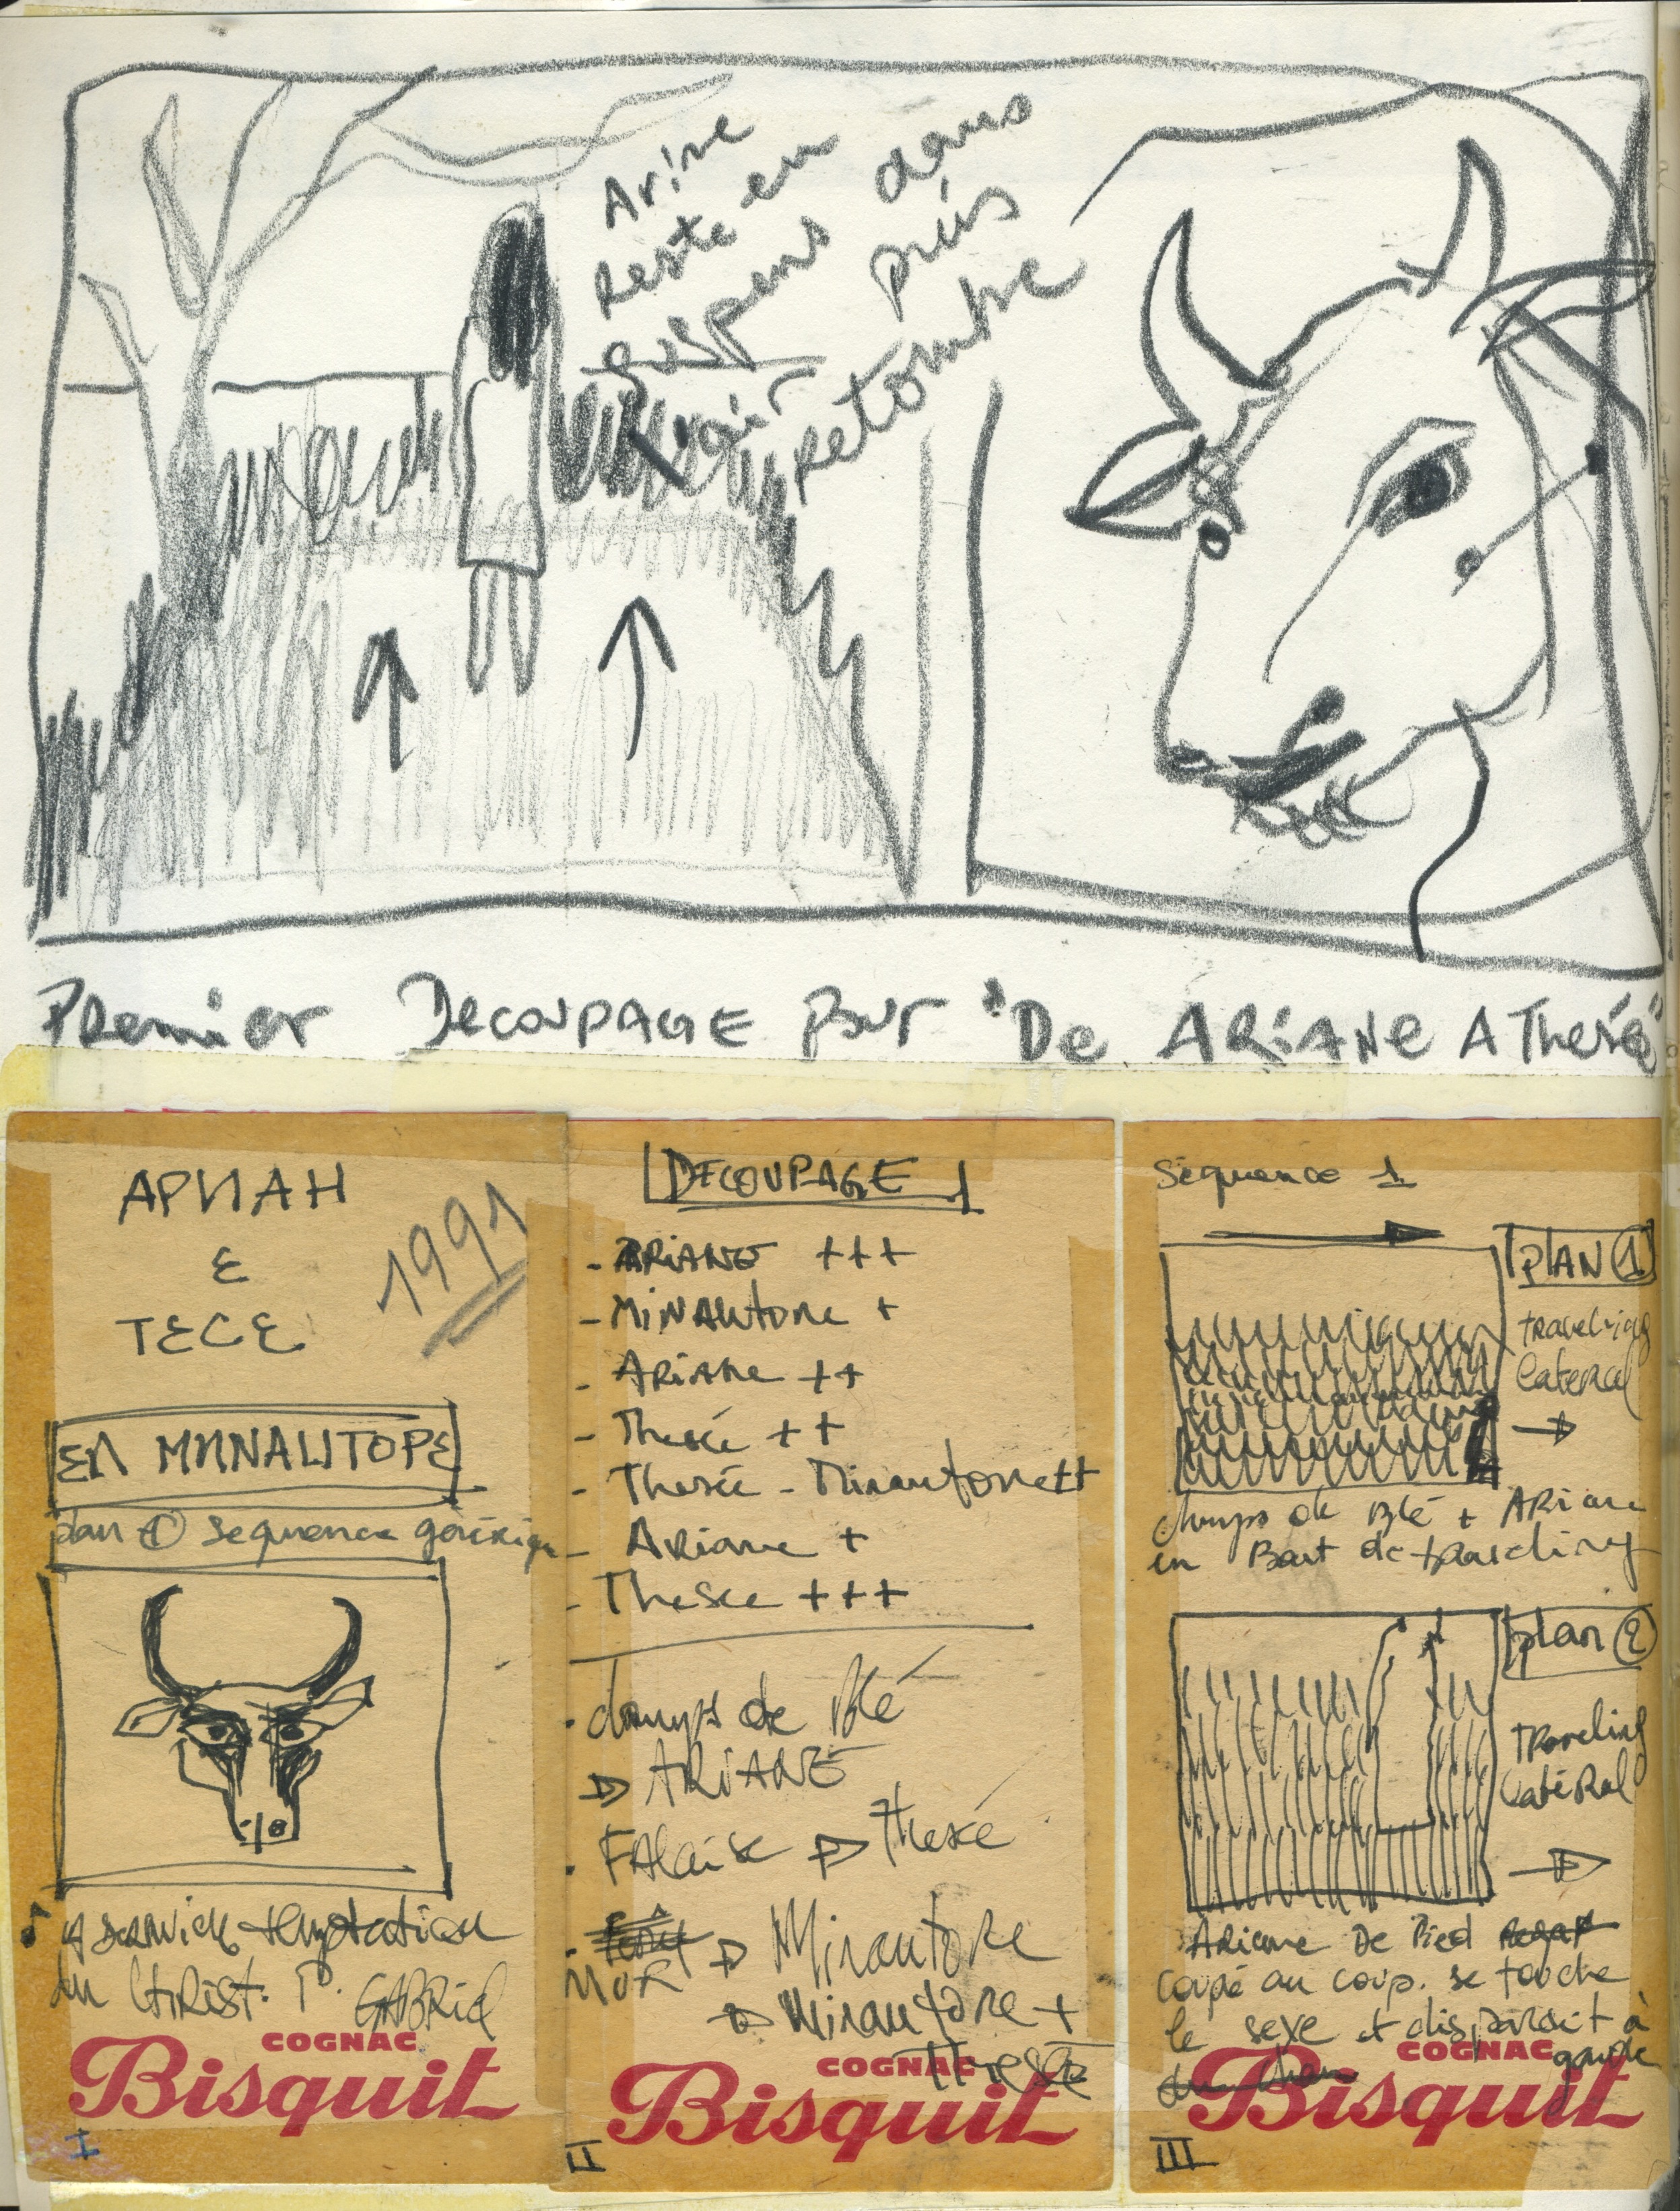 Arine
reste en
suspens dans
l'air puis
retombe
Premier DECOUPAGE pour "De ARIANE A Thesée"
APИAH
ε
TεCε
1991
εΛ MИNAUTOPε
plan 1 sequence générique
temptation
du Christ. P. GABRIEL
COGNAC
Bisquit
I
DECOUPAGE
- ARIANE +++
- MINAUtoRe +
- Ariane ++
- Thesée ++
- Thesée - Minautore ++
- Ariane +
- Thesée +++
. champs de Blé
⇒ ARIANE
. FAlaise ⇒ Thesée
. MUR ⇒ Minautore
⇒ Minautore +
Thesée
COGNAC
Bisquit
II
Séquence 1
PLAN 1
traveling
lateral
champs de Blé + Ariane
en Bout de traveling
plan 2
traveling
latéral
Ariane De Pied
coupé au coup. se touche
le sexe et disparait à
gauche
du cham
COGNAC
Bisquit
III